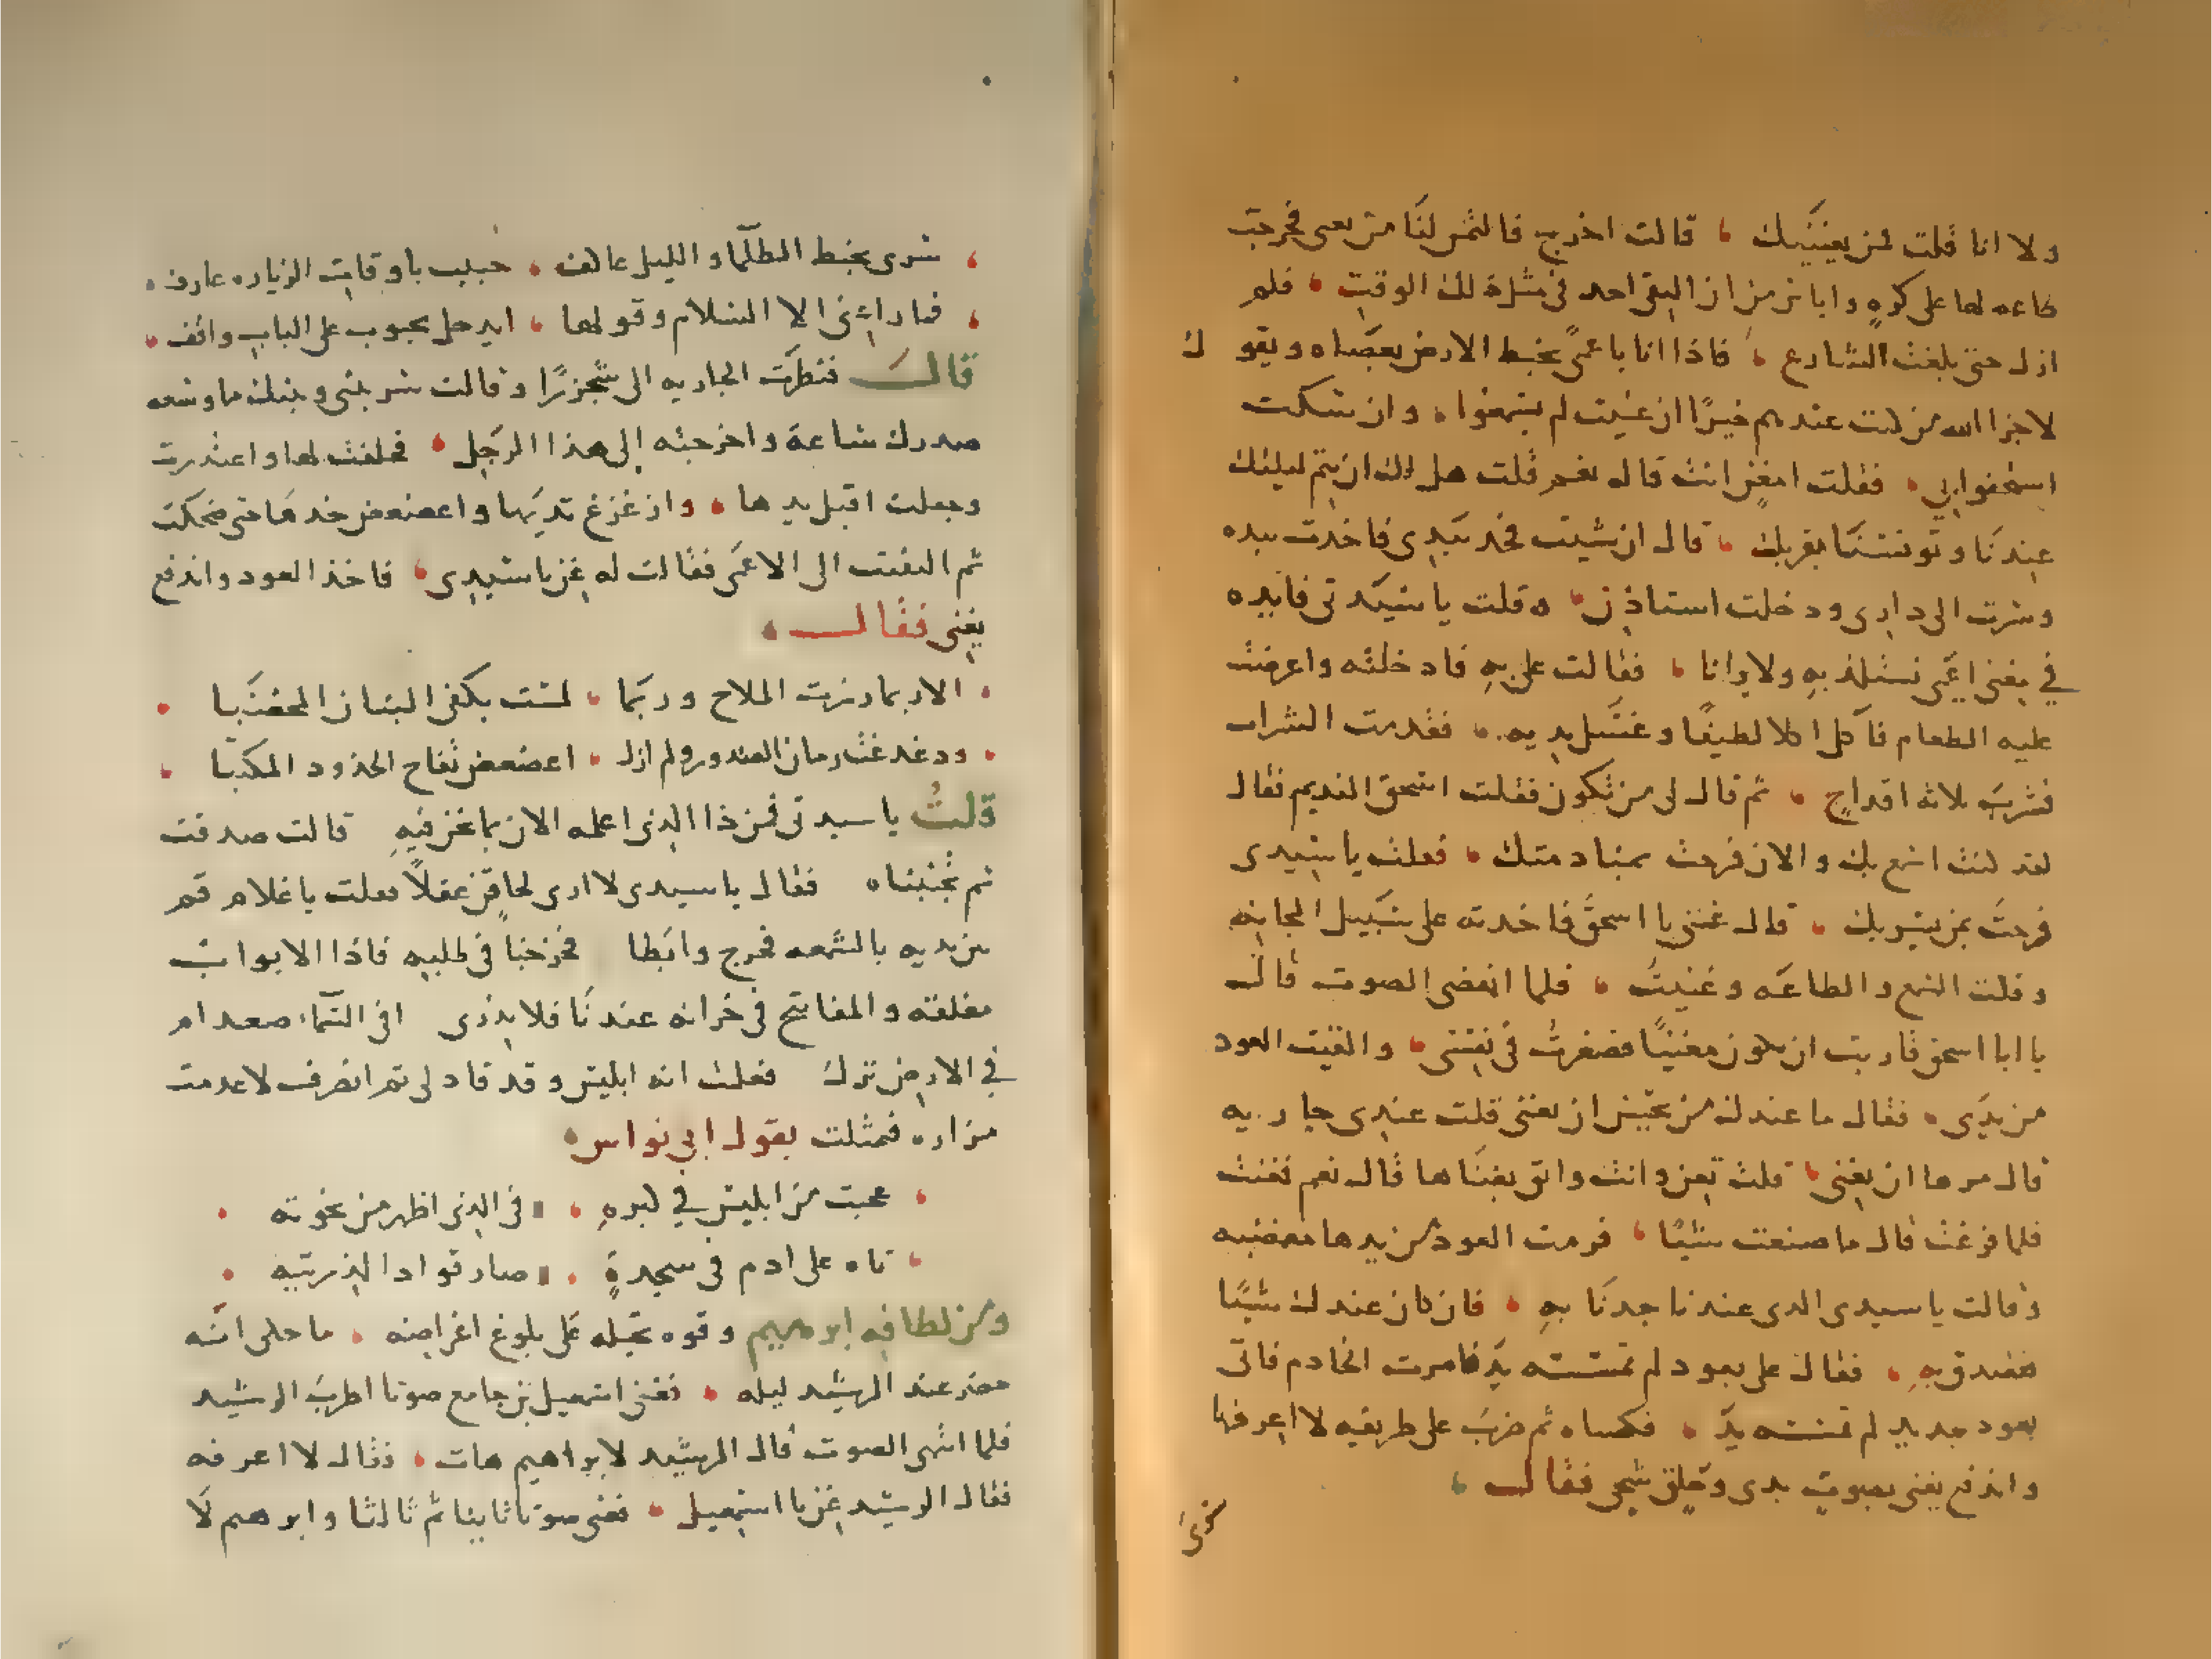 ولا انا قلت لمن يغنيك قالت اخرج فالتمس لنا من يغنى فخرجت
طاعه لها على كره وايا س من ان البقى احد فى مثل ذلك الوقت فلم
ازل حتى بلغت الشارع فاذا انا باعمى يخبط الارض بعصاه ويقول
لا جزا الله من كنت عندهم خيرًا ان غنيت لم يسمعوا وان سكت
استخفوا بي فقلت امغن انت قال نعم قلت هل لك ان يتم ليلتك
عندنا وتونسنا بقربك قال ان شيت فخد بيدى فاخدت بيده
وسرت الى دارى ودخلت استاذن وقلت يا سيدتى فايده
في مغنى اعمى نستلذ به ولا يرانا فقالت على به فادخلته واعرضت
عليه الطعام فاكل اكلا لطيفًا وغسل يديه فقدمت الشراب
فشرب ثلاثه اقداح ثم قال لى من تكون فقلت اسحق النديم فقال
لقد كنت اسمع بك والان فرحت بمنادمتك فقلت يا سيدى
فرحت بمن يسر بك قال غننى يا اسحق فاخدته على سبيل المجانه
وقلت السمع والطاعه وغنيت فلما انقضى الصوت قال
يا ابا اسحق قاربت ان تكون مغنيًا فصغرت فى نفسى والقيت العود
من يدى فقال ما عندك من يحسن ان يغنى قلت عندى جاريه
قال مرها ان تغنى قلت تغن وانت واثق بغناها قال نعم فغنت
فلما فرغت قال ما صنعت شيئًا فرمت العود من يدها مغضبه
وقالت يا سيدى الدى عندنا جدنا به فان كان عندك شيئًا
فتصدق به فقال على بعود لم تمسسه يد فامرت الخادم فاتى
بعود جديد لم تمسسه يد فكساه ثم ضرب على طريقه لا اعرفها
واندفع يغنى بصوت بدى وحلق شجى فقال
سرى
سرى يخبط الظلما والليل عاكف حبيب باوقات الزياره عارف
فما راعنى الا السلام وقولها ايدخل محبوب على الباب واقف
قال فنظرت الجاريه الى شجزرًا وقالت سر بينى وبينك ما وسعه
صدرك ساعة واخرجته إلى هذا الرجل فحلفت لها واعتذرت
وجعلت اقبل يدها وازغزغ ثدييها واعضعض خدها حتى ضحكت
ثم التفتت الى الاعمى فقالت له غن يا سيدى فاخذ العود واندفع
يغنى فقال
الا ربما زرت الملاح وربما لمست بكفى البنان المخضبا
ودغدغت رمان الصدور ولم ازل اعضعض تفاح الخدود المكتبا
قلتُ يا سيدتى فمن ذا الذى اعلمه الان بما نحن فيه قالت صدقت
ثم تجنبناه فقال يا سيدى لا ارى لحاقن عقلاً فقلت يا غلام قم
بين يديه بالشمعه فخرج وابطا فخرجنا فى طلبه فاذا الابواب
مغلقه والمفاتيح فى خزانه عندنا فلا ندرى افى السماء صعد ام
في الارض نزل فعلمت انه ابليس وقد قاد لى ثم انصرف لا عدمت
مزاره فتمثلت بقول ابى نواس
عجبت من ابليس في كبره فى الذى اظهر من نخوته
تاه على ادم فى سجدةٍ صار قوادا لذريته
ومن لطافه ابرهيم وقوه تحيله على بلوغ اغراضه ما حكى انه
حضر عند الرشيد ليله فغنى اسمعيل بن جامع صوتا اطرب الرشيد
فلما انتهى الصوت قال الرشيد لابراهيم هات فقال لا اعرفه
فقال الرشيد غن يا اسمعيل فغنى صوتا ثانيا ثم ثالثا وابرهيم لا